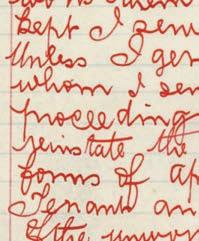 kept I sen
Unless I ger
whom I sen
proceeding
reinstate the
forms of Ap
Tenant an
of the unwor